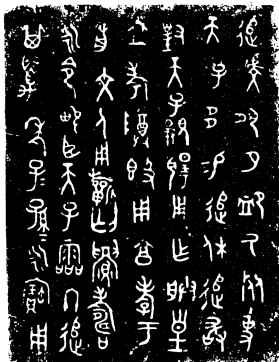 追虔夙夕卹厥死事
天子多易追休追敢
對天子顯揚用乍朕皇
且考尊簋用享孝于
前文人用祈匄眉壽
永令畯臣天子霝冬追
其萬年子子孫孫永寶用